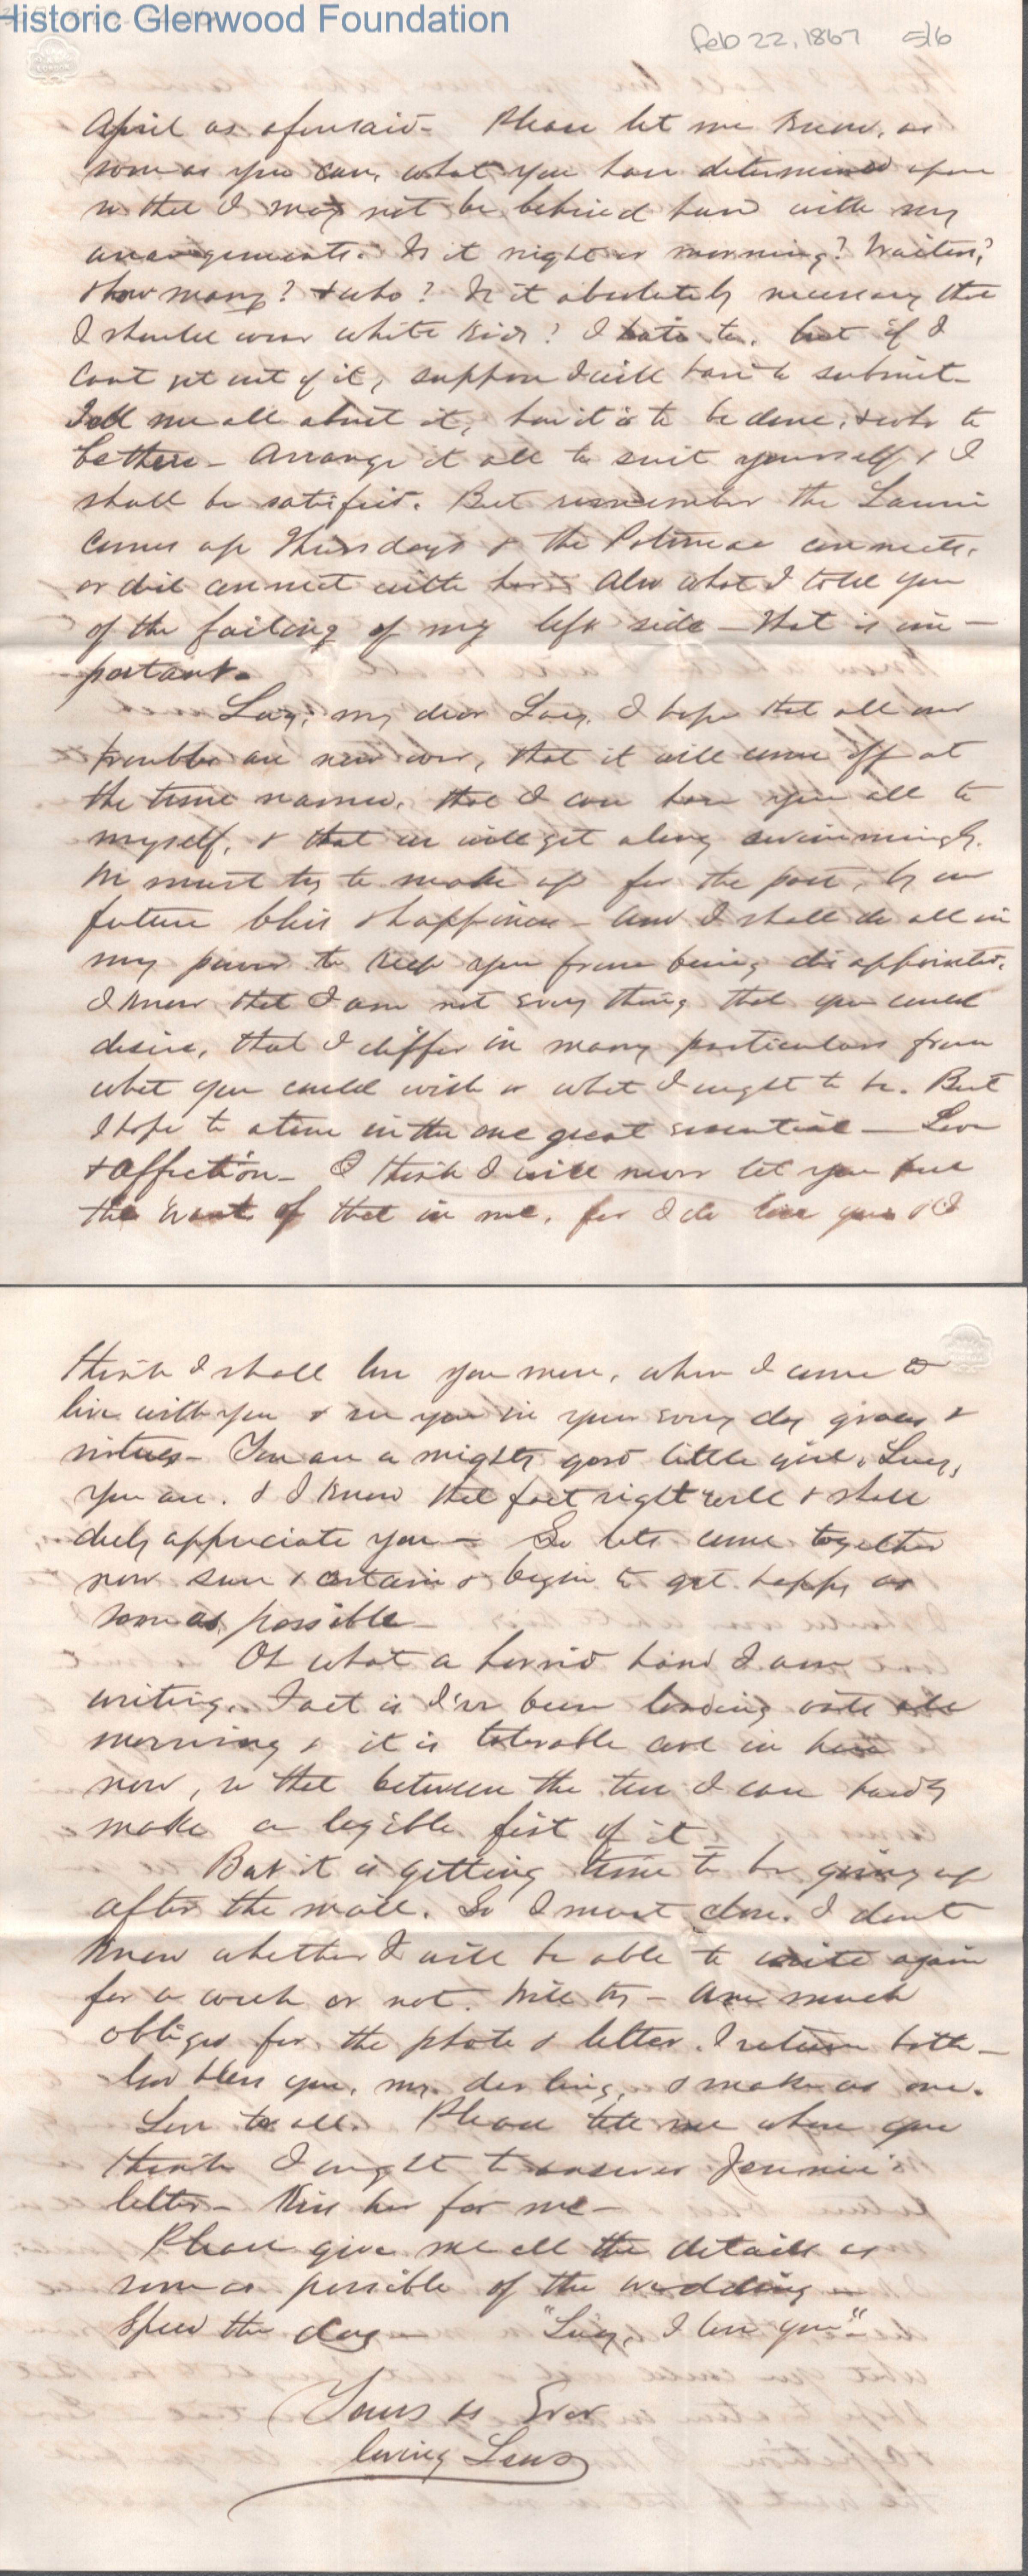 Historic Glenwood Foundation
Feb 22, 1867 5/6
April as aforesaid - Please let me know, as
soon as you can, what you have determined upon
so that I may not be behind hand with my
arrangements. Is it night or morning? Waiters?
& how many? & who? Is it absolutely necessary that
I should wear white kids? I hate to, but if I
cant get out of it, suppose I will have to submit -
Tell me all about it, how it is to be done, & who to
be there - Arrange it all to suit yourself & I
shall be satisfied. But remember the
comes up Thursdays & the Potomac connects,
or did connect with her. Also what I told you
of the failing of my left side - that is im -
portant.
Lucy, my dear Lucy, I hope that all our
troubles are now over, that it will come off at
the time named, that I can have you all to
myself, & that we will get along swimmingly.
We must try to make up for the past, by our
future bliss & happiness - And I shall do all in
my power to keep you from being disappointed.
I know that I am not every thing that you could
desire, that I differ in many particulars from
what you could wish or what I ought to be. But
I hope to atone in the one great essential - Love
& Affection - I think I will never let you feel
the want of that in me, for I do love you & I
think I shall love you more, when I come to
live with you & see you in your every day graces &
virtues - You are a mighty good little girl, Lucy,
you are, & I know that fact right well & shall
duly appreciate you - So lets come together
now sure & certain & begin to get happy as
soon as possible -
Oh what a horrid hand I am
writing. Fact is I've been loading oats
morning & it is tolerable cool in here
now, so that between the two I can hardly
make a legible fist of it -
But it is getting time to be going up
after the mail. So I must close. I dont
know whether I will be able to write again
for a week or not. Will try - Am much
obliged for the photo & letter. I return both -
God bless you, my darling, & make us one.
Love to all. Please tell me when you
think I ought to answer Jennie's
letter - Kiss her for me -
Please give me all the details as
soon as possible of the wedding -
Speed the day - "Lucy, I love you" -
Yours as Ever
loving